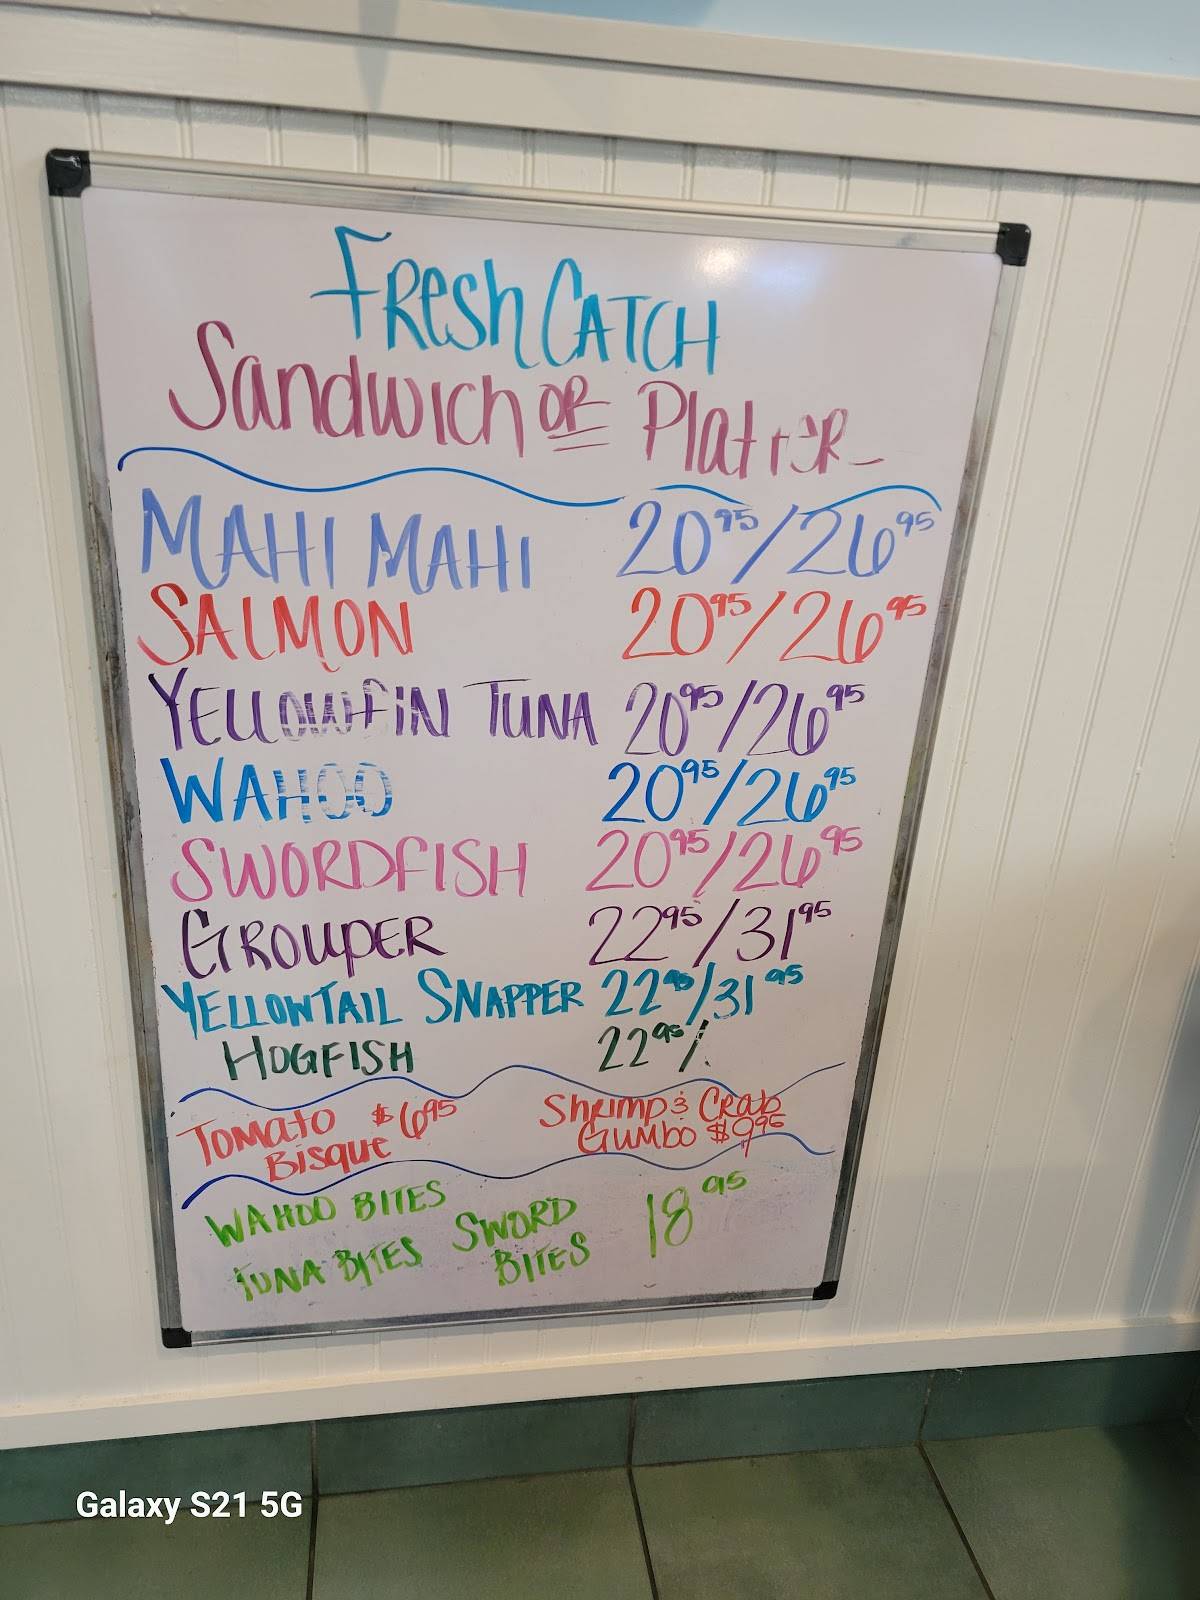 Fresh Catch
Sandwich or Platter
MAHI MAHI 20⁹⁵/26⁹⁵
SALMON 20⁹⁵/26⁹⁵
YELLOWFIN TUNA 20⁹⁵/26⁹⁵
WAHOO 20⁹⁵/26⁹⁵
SWORDFISH 20⁹⁵/26⁹⁵
GROUPER 22⁹⁵/31⁹⁵
YELLOWTAIL SNAPPER 22⁹⁵/31⁹⁵
HOGFISH 22⁹⁵/
Tomato Bisque $6⁹⁵
Shrimp & Crab
Gumbo $9⁹⁵
WAHOO BITES
TUNA BITES
SWORD
BITES
18⁹⁵
Galaxy S21 5G